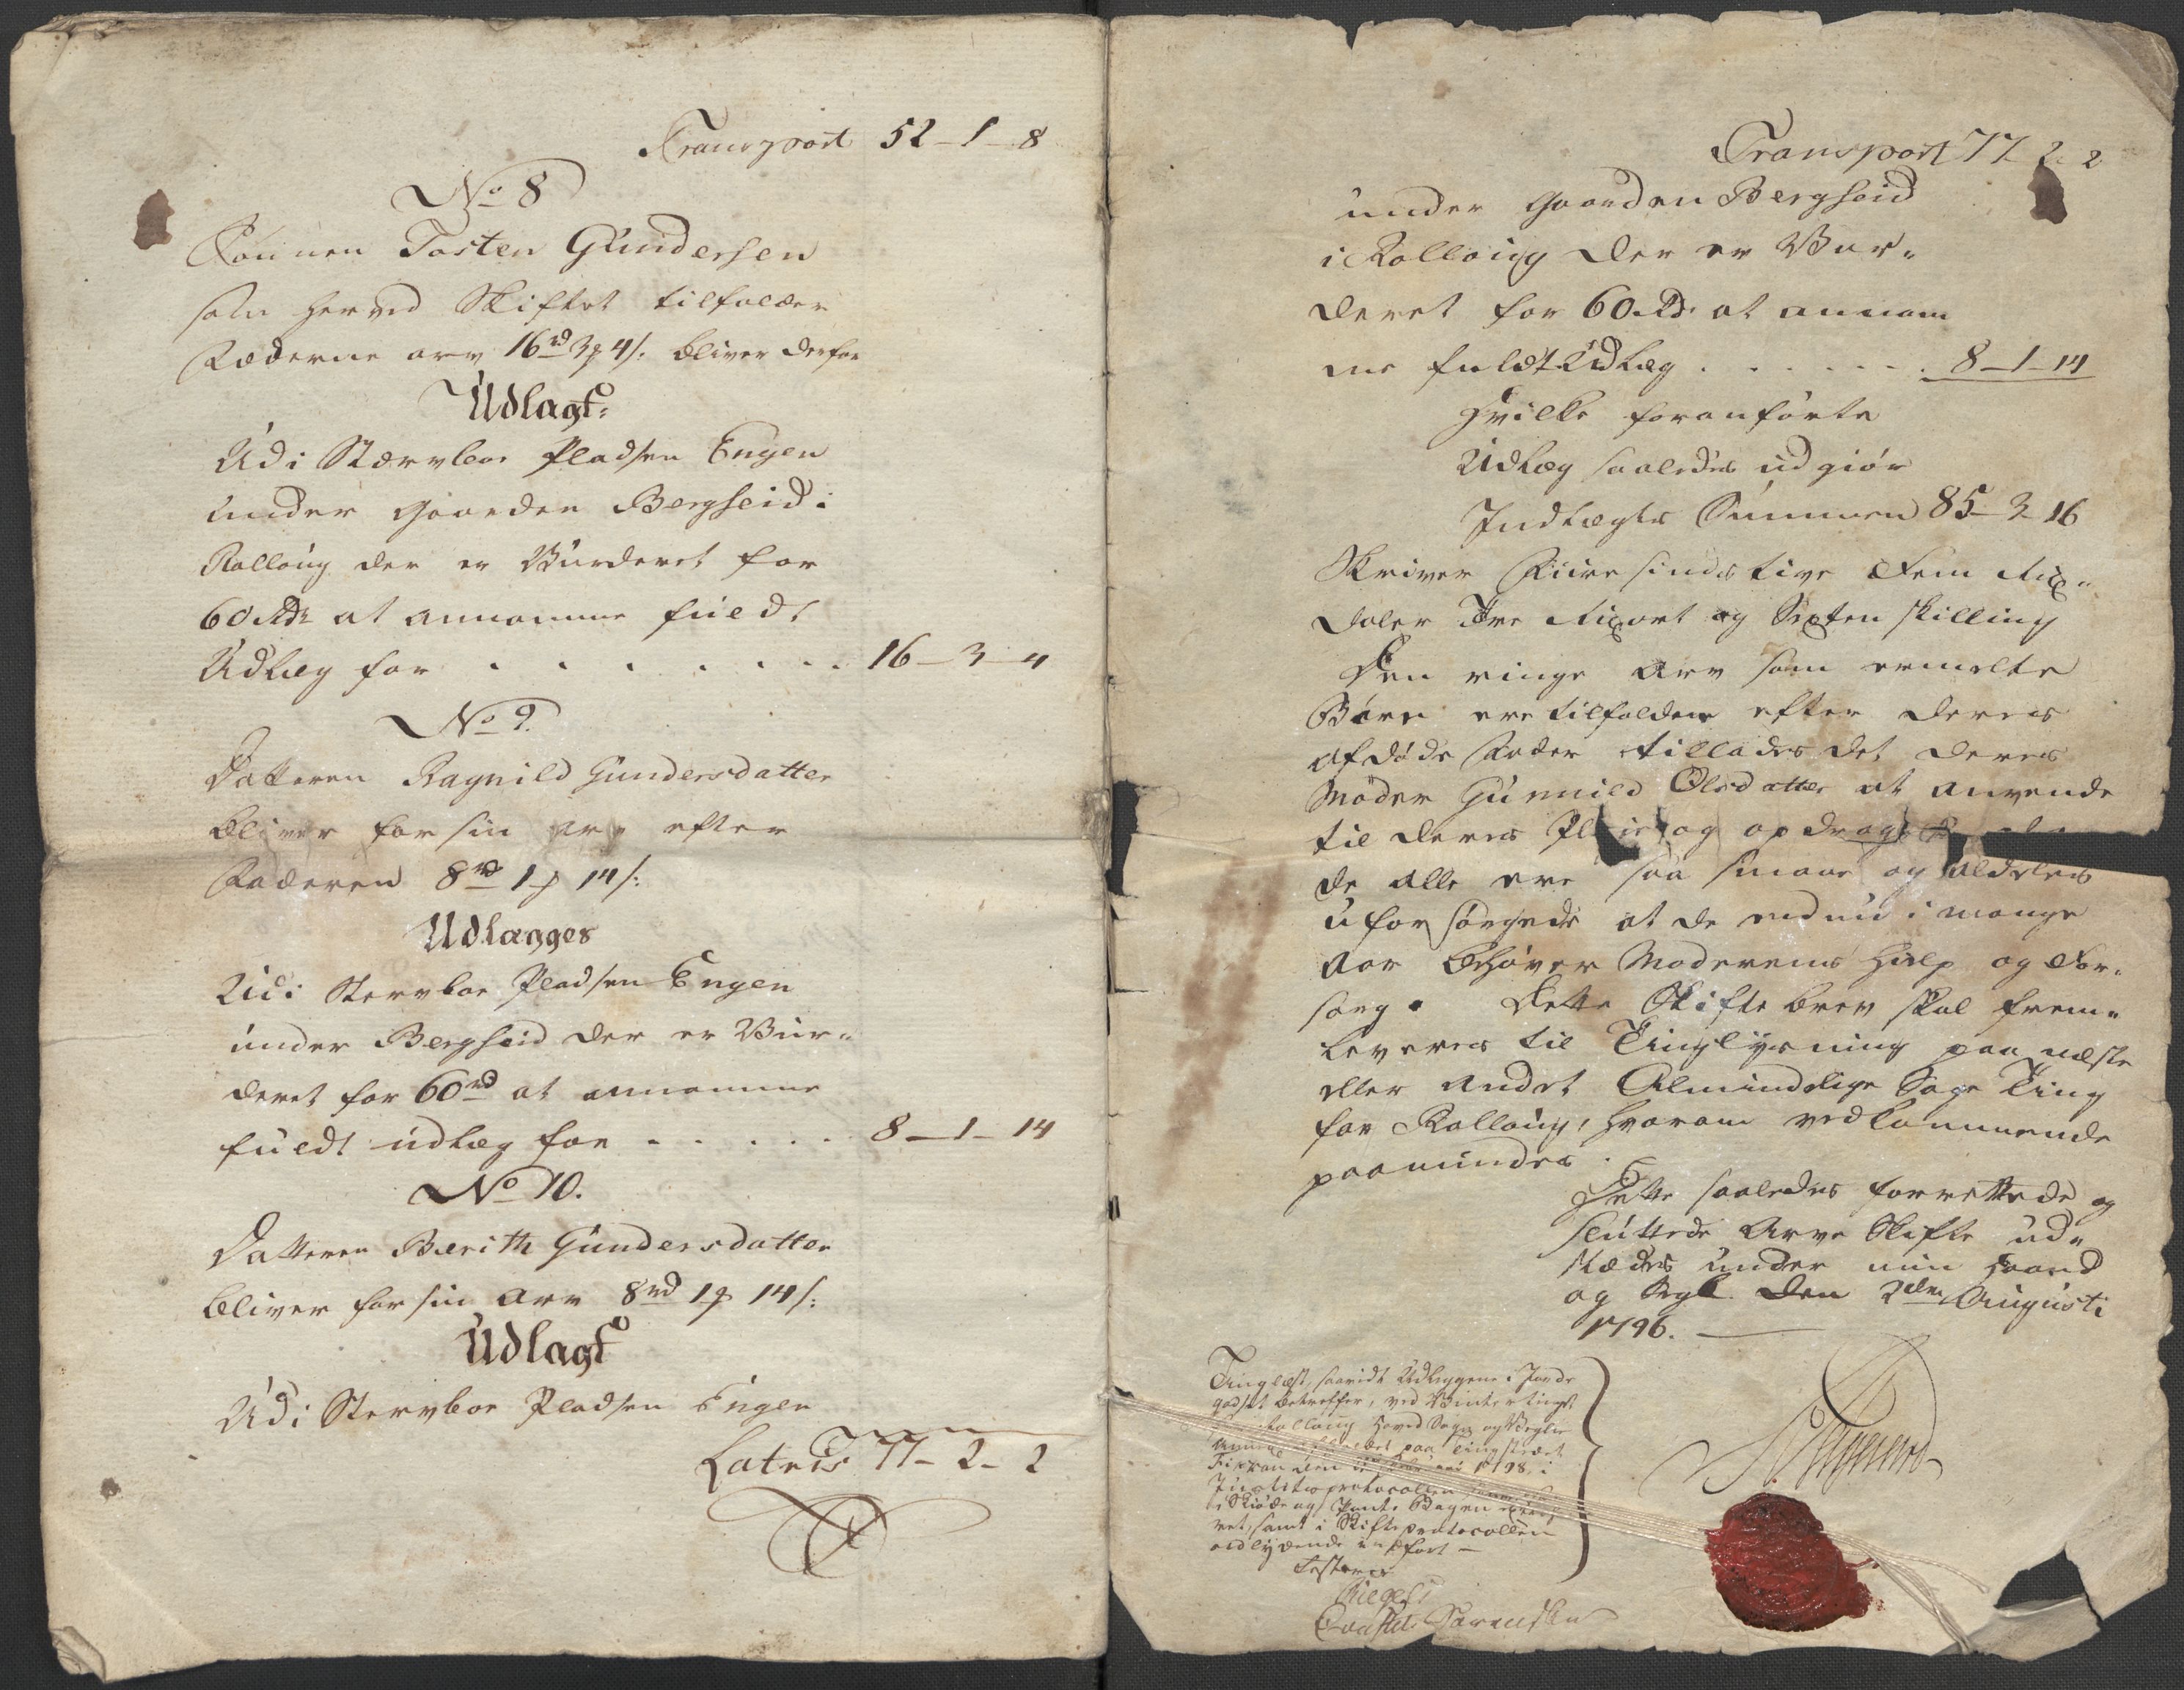 Transport 52-1-8
No 8
Sönnen Tosten Gundersen
som herved Skiftet tilfalder
Fæderne arv 16 rd 3 ț 4 s: bliver derfor
Udlagt:
Udi Stervboe Pladsen Engen
under Gaarden Bergseid i
Kolloug der er Vurderet for
60 Rdr at annamme fuldt
Udlæg for . . . . . . . 16-3-4
No 9.
Datteren Ragnild Gundersdatter
bliver for sin arv efter
Faderen 8 rd 1 ț 14 s:
Udlægges
Udi Stervboe Pladsen Engen
under Bergseid der er Vur-
deret for 60 rd at annamme
fuldt udlæg for - . . . . 8-1-14
No 10.
Datteren Berith Gundersdatter
bliver for sin Arv 8 rd 1 ț 14 s:
Udlagt
Udi Stervboe Pladsen Engen
Lateris 77-2-2
Transport 77-2-2
under Gaarden Bergseid
i Kolloug der er Vur-
deret for 60 Rd. at annam
me fuldt Udlæg . . . . . . 8-1-14
Hvilke foranförte
Udlæg saaledes udgiör
Indtægts Summen 85-3-16
Skriver Fiire sinds tive Fem Rix-
daler Tre Rixort og Sexten skilling
Den ringe Arv som ermelte
Börn ere tilfalden efter deres
afdöde Fader tillades det deres
Moder Gunnild Olsdatter at anvende
til deres og opdragelse
de alle ere saa smaae og aldeles
uforsörgede at de endnu i mange
Aar behöver Moderens hielp og For-
sorg. Dette Skiftebrev skal frem-
leveres til Tinglysning paa næste
eller andet Almindelige Sage Ting
for Kolloug, hvorom vedkommende
paamindes.
Dette saaledes forrettede og
sluttede Arve Skifte ud-
stædes under min Haand
og Segl. den 2den Augusti
1796.
Tinglæst, saavidt Udlæggene i Jorde
godset betreffer, ved Vinter tinget
Kolloug Hoved Sogn og
paa Tingstædet
den 1798, i
Justitsprotocollen
i Skiöde og Pante Bogen
ret, samt i Skifteprotocollen
ordlydende indfört -
Testerer
Sörensken